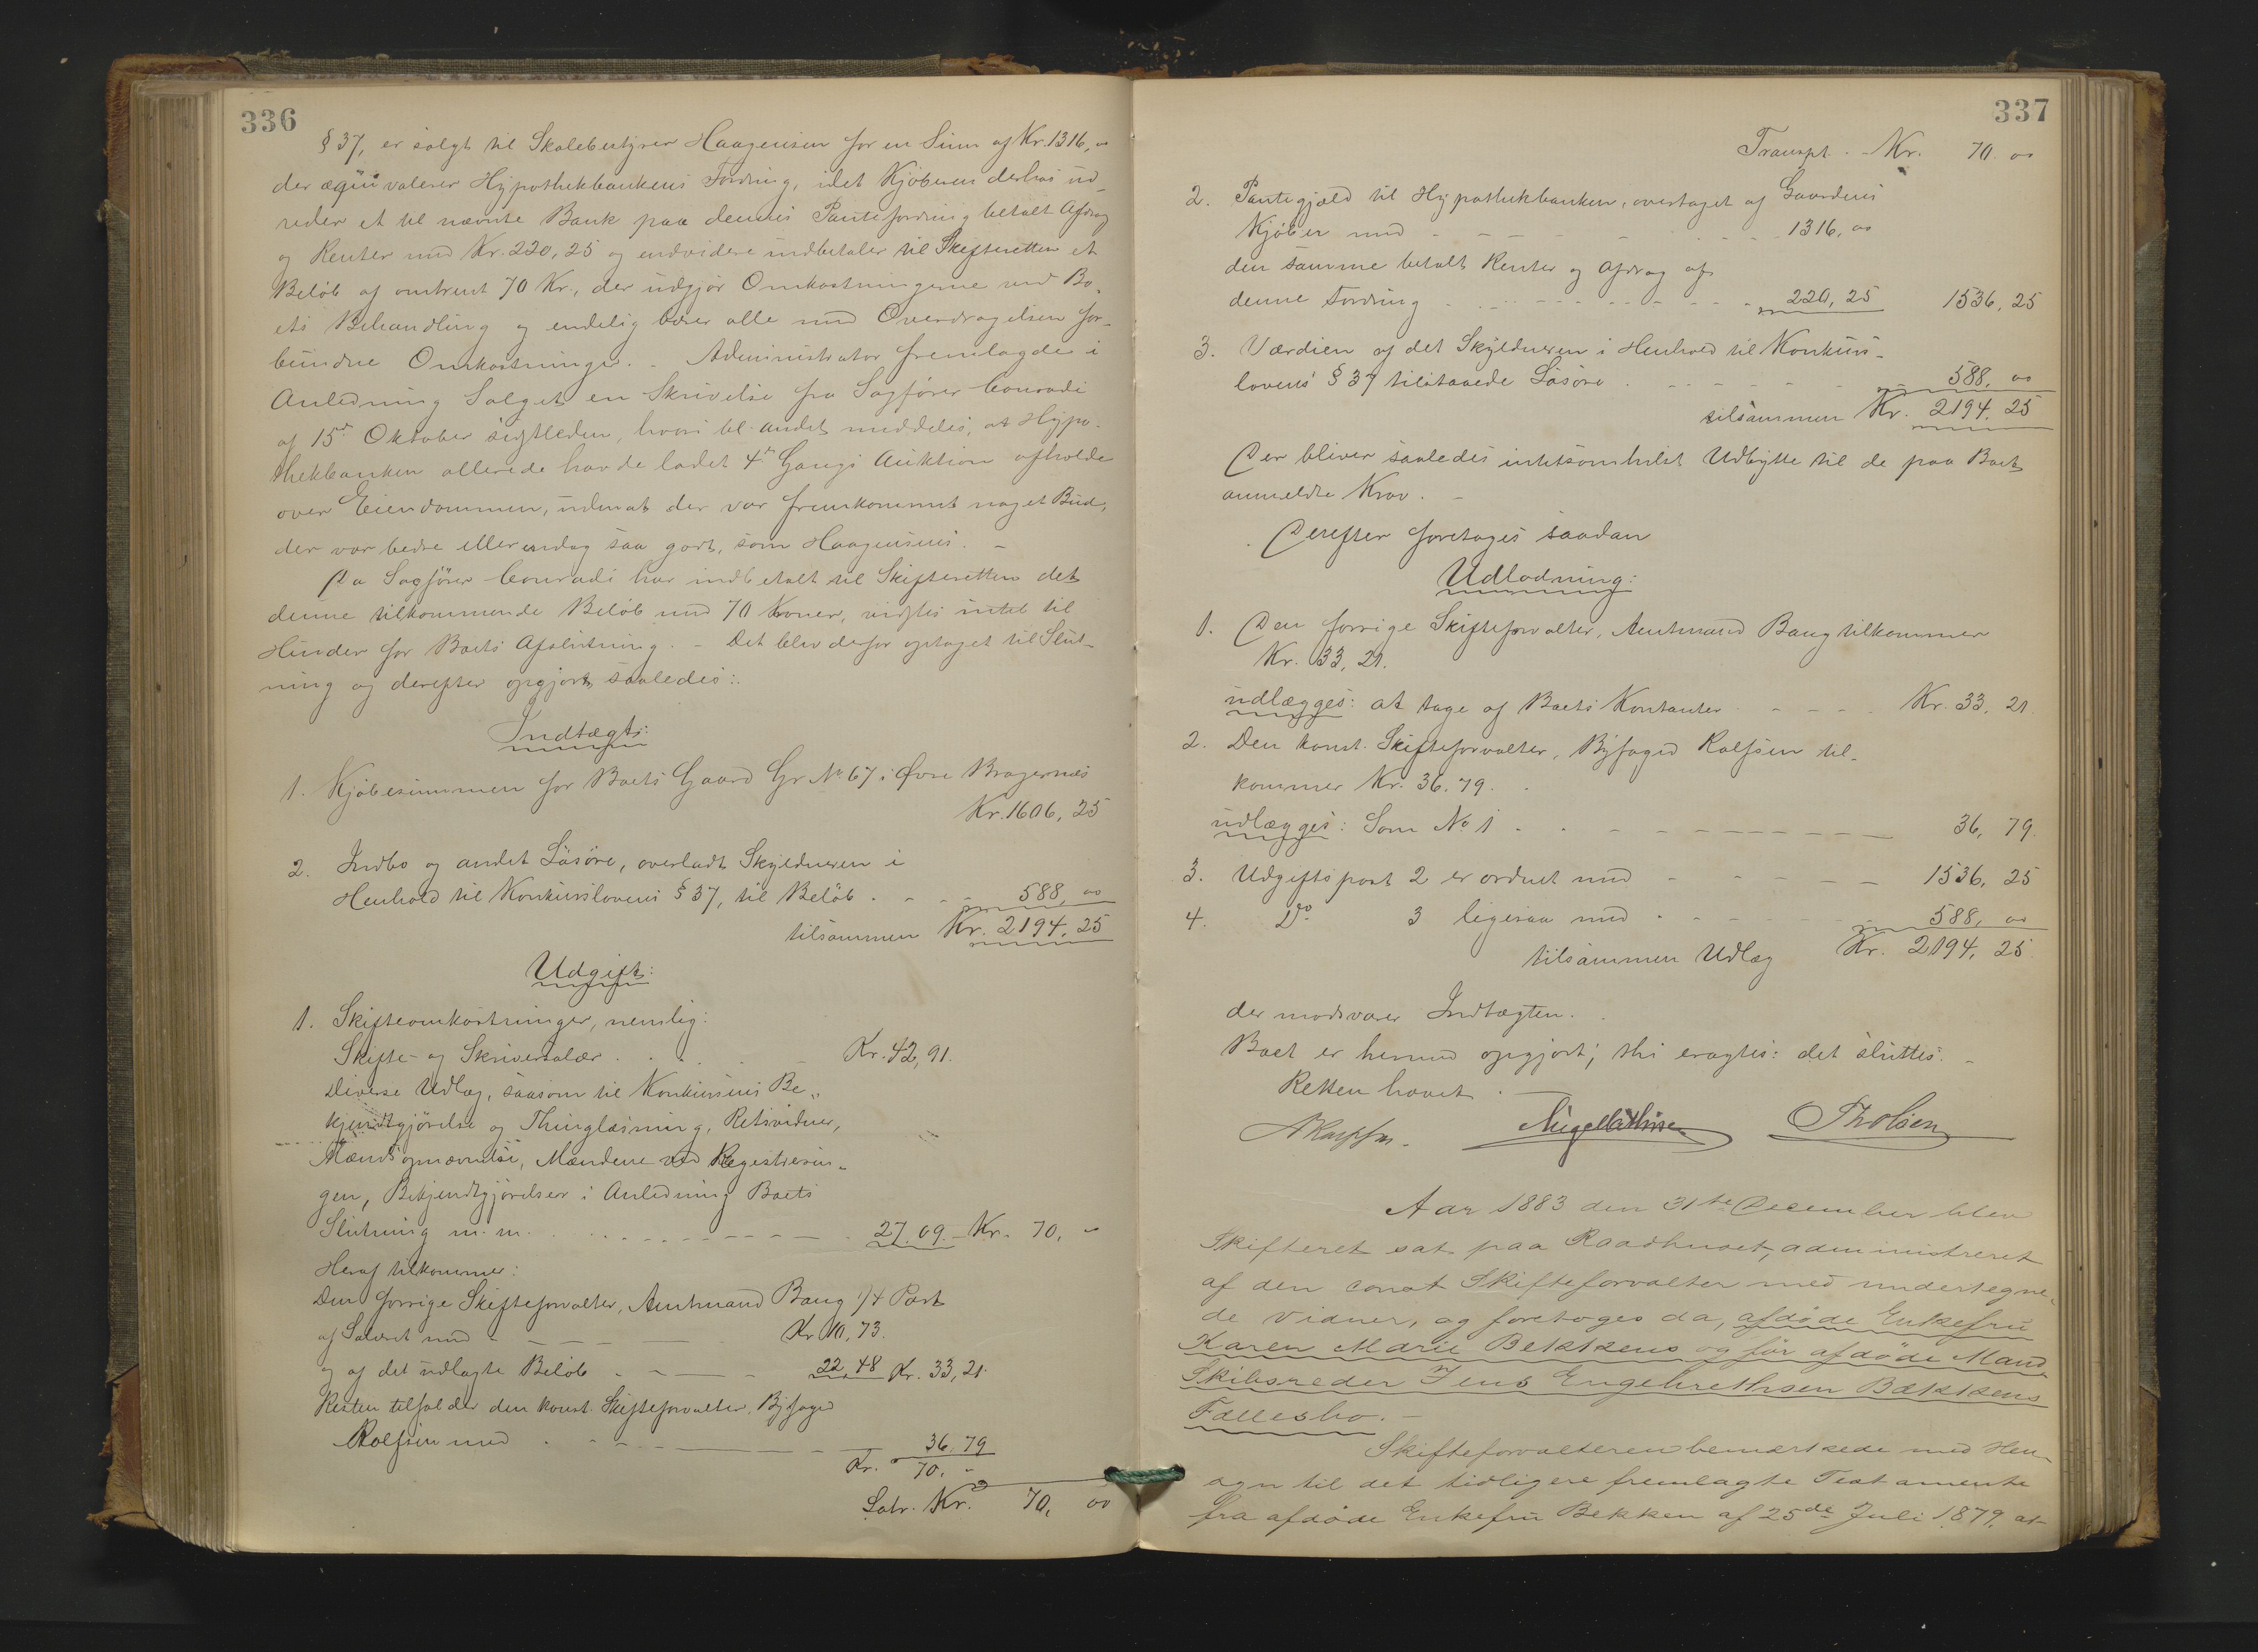 336
§ 37, er solgt til Skolebestyrer Haagensen for en Sum af Kr. 1316, 00
der æquivalerer Hypothekbankens Fordring, idet Kjøberen derhos ud-
reder et til nævnte Bank paa dennes Pantefordring betalt Afdrag
og Renter med Kr. 220,25 og endvidere indbetaler til Skifteretten et
Beløb af omtrent 70 Kr., der udgjør Omkostningerne ved Bo-
ets Behandling og endelig bærer alle med Overdragelsen for-
bundne Omkostninger. - Administrator fremlagde i
Anledning Salget en Skrivelse fra Sagfører Conradi
af 15de Oktober sidstleden, hvori bl. andet meddeles, at Hypo-
thekbanken allerede havde ladet 4de Gangs Auktion afholde
over Eiendommen, uden at der var fremkommet noget Bud,
der var bedre eller endog saa godt, som Haagensens. -
Da Sagfører Conradi har indbetalt til Skifteretten det
denne tilkommende Beløb med 70 Kroner, vidstes intet til
Hinder for Boets Afslutning. - Det blev derfor optaget til Slut-
ning og derefter opgjort saaledes:
Indtægt:
1. Kjøbesummen for Boets Gaard Gr. No 67 i Øvre Bragernæs
Kr. 1606, 25
2. Indbo og andet Løsøre, overladt Skyldneren i
Henhold til Konkurslovens § 37, til Beløb - - - 588, 00
tilsammen Kr. 2194. 25
Udgift:
1. Skifteomkostninger, nemlig:
Skifte- og Skriversalær . . . Kr. 42, 91.
Diverse Udlæg, saasom til Konkursens Be-
kjendtgjørelse og Thinglæsning, Retsvidner,
Mænds opnævnelse, Mændene ved Registrerin-
gen, Bekjendtgjørelser i Anledning Boets
Slutning m. m. - - - 27. 09. - Kr. 70, -
Heraf tilkommer:
Den forrige Skifteforvalter, Amtmand Bang 1/4 Part
af Salæret med - - - Kr. 10, 73.
og af det udlagte Beløb - - - 22,48 Kr. 33, 21.
Resten tilfalder den konst. Skifteforvalter, Byfoged
Rolfsen med - - - 36. 79
Kr. 70. -
Latr. Kr. 70, 00
337
Transpt. - Kr. 70. 00
2. Pantegjæld til Hypothekbanken, overtaget af Gaardens
Kjøber med - - - 1316, 00
den samme betalt Renter og Afdrag af
denne Fordring - - - 220, 25 1536, 25
3. Værdien af det Skyldneren i Henhold til Konkurs-
lovens § 37 tilstaaede Løsøre - - - 588, 00
tilsammen Kr. 2194. 25
Der bliver saaledes intetsomhelst Udbytte til de paa Boet
anmeldte Krav. -
Derefter foretoges saadan
Udlodning:
1. Den forrige Skifteforvalter, Amtmand Bang tilkommer
Kr. 33, 21.
udlægges: at tage af Boets Kontanter - - - Kr. 33, 21.
2. Den konst. Skifteforvalter, Byfoged Rolfsen til-
kommer Kr. 36. 79.
udlægges: Som No 1 - - - 36, 79.
3. Udgiftspost 2 er ordnet med - - - 1536, 25
4. Do 3 ligesaa med - - - 588, 00
tilsammen Udlæg Kr. 2194, 25
der modsvarer Indtægten.
Boet er hermed opgjort, thi eragtes: det sluttes. -
Retten hævet. -
Aar 1883 den 31te December blev
Skifteret sat paa Raadhuset, administreret
af den const Skifteforvalter med undertegne-
de Vidner, og foretoges da, afdøde Enkefru
Karen Marie Bekkens og før afdøde Mand
Skibsreder Jens Engebrethsen Bækkens
Fællesbo. -
Skifteforvalteren bemærkede med Hen-
syn til det tidligere fremlagte Testamente
fra afdøde Enkefru Bekken af 25de Juli 1879, at